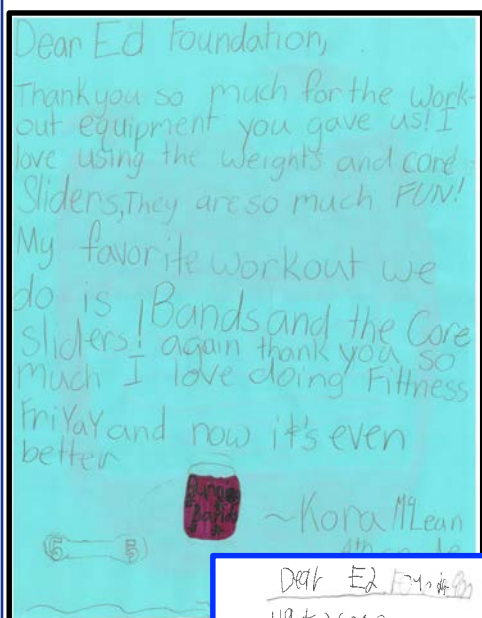 Dear Ed Foundation,
Thank you so much for the Work-
out equipment you gave us! I
love using the weights and core
Sliders, They are so much FUN!
My favorite workout we
do is Bands and the Core
sliders! again thank you so
much I love doing Fittness
FriYaY and now it's even
better
Bands
5 5
~Kora McLean
4th
Dear Ed